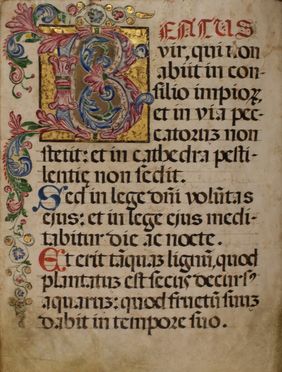 BEATUS
vir, qui non
abiit in con-
silio impioꝝ,
et in via pec-
catorum non
stetit: et in cathedra pesti-
lentie non sedit.
Sed in lege dñi volũtas
ejus: et in lege ejus medi-
tabitur die ac nocte.
Et erit tãquaʒ lignũ, quod
plantatuʒ est secus decursꝰ
aquaruʒ: quod fructũ suuʒ
dabit in tempore suo.